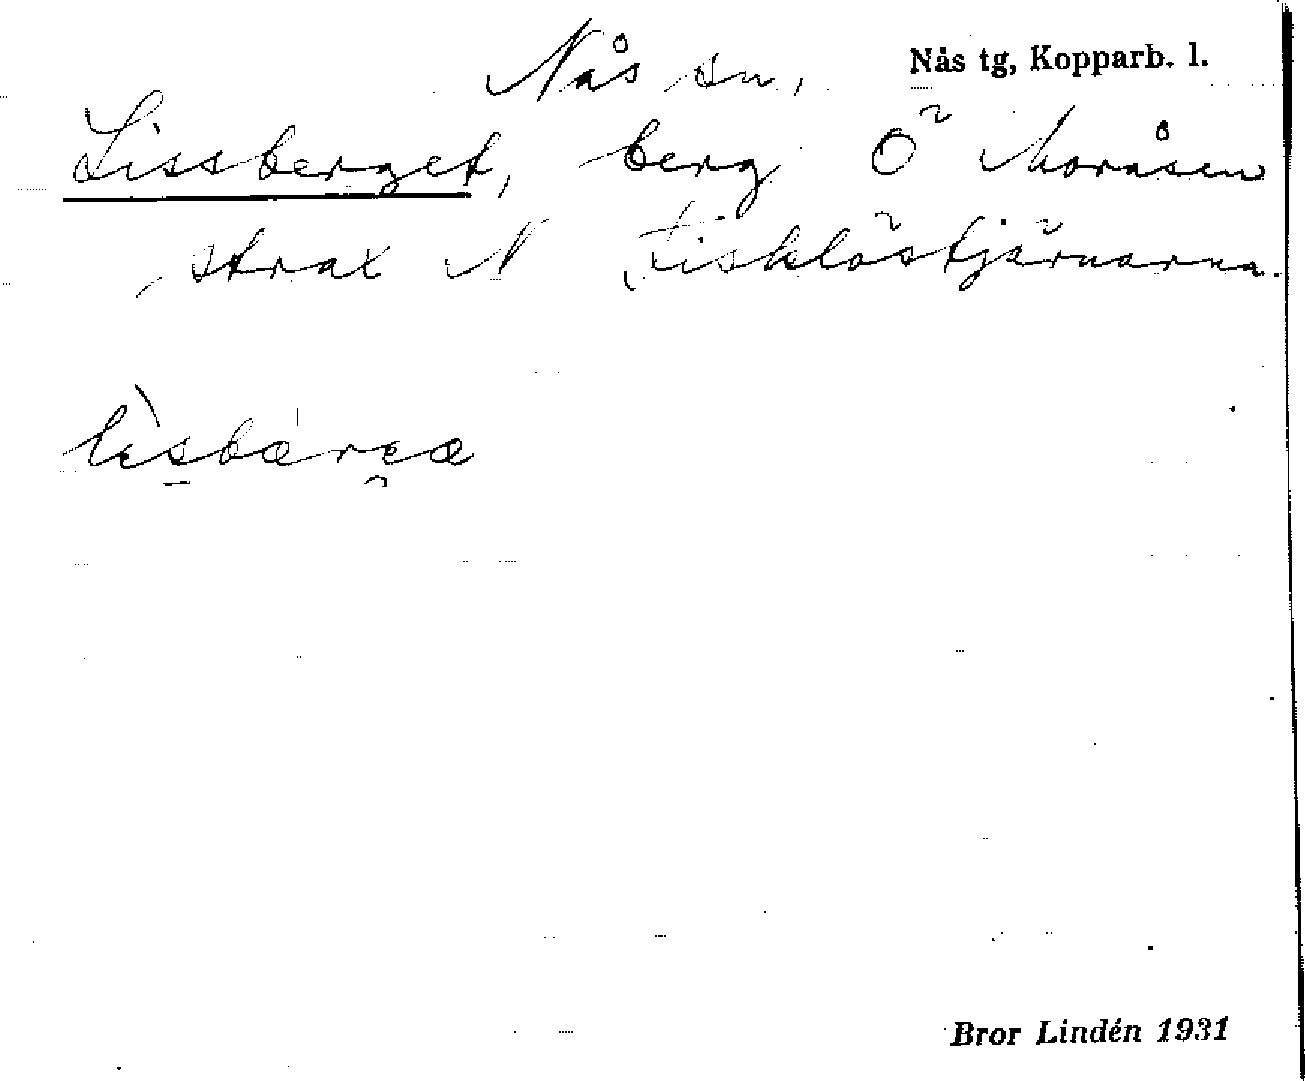 Nås sn, Nås tg, Kopparb. l.
Lissberget, berg Ö Moråsen
strax N Fisklöstjärnarna.
Bror Lindén 1931